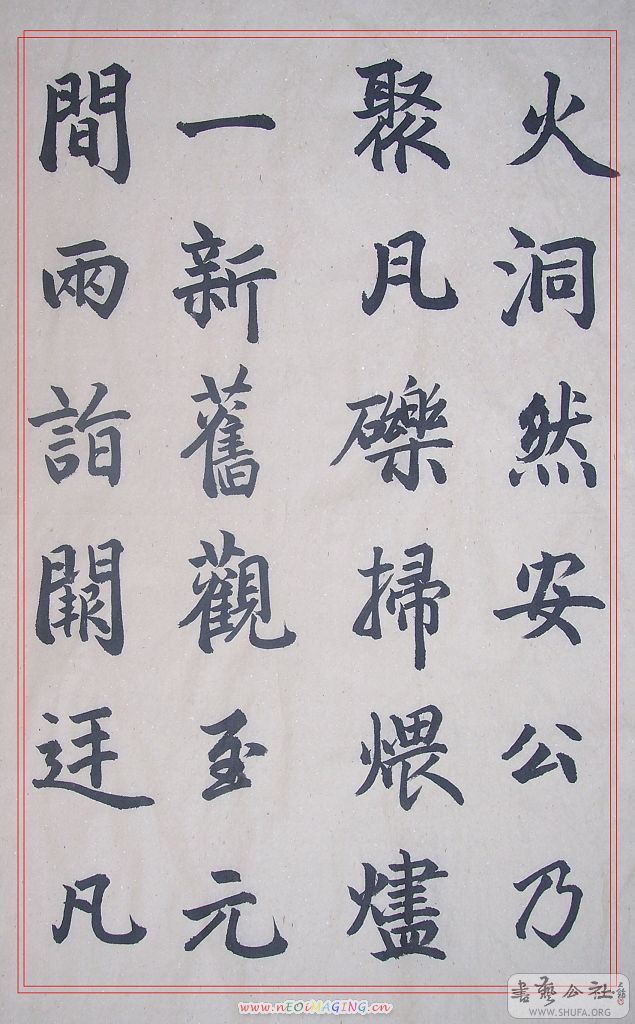 火洞然安公乃
聚瓦礫掃煨燼
一新舊觀至元
間兩詣闕廷凡
www.nEOiMAGiNG.cn
書藝公社
WWW.SHUFA.ORG